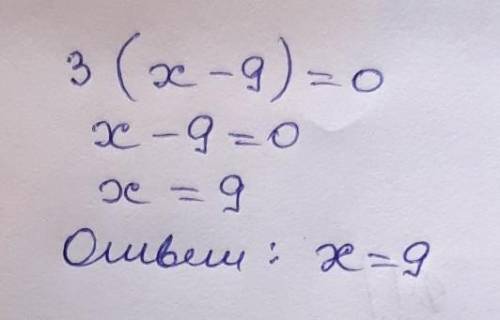 3 (x - 9) = 0
x - 9 = 0
x = 9
Ответ: x = 9